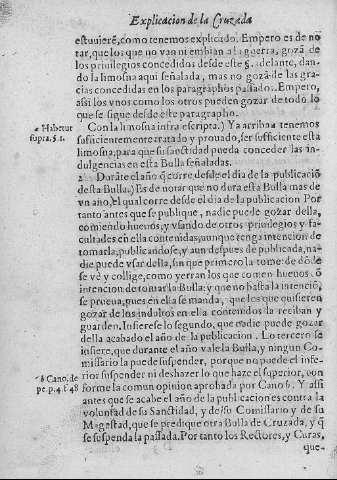 Explicacion de la Cruzada
estuuierẽ, como tenemos explicado. Empero es de no
tar, que los que no van ni embian a la guerra, gozã de
los priuilegios concedidos desde este §. adelante, dan-
do la limosna aqui señalada, mas no gozã de las gra-
cias concedidas en los paragraphos passados. Empero,
assi los vnos como los otros pueden gozar de todo lo
que se sigue desde este paragrapho.
a Habetur
supra. §. 1.
Con la limosna infraescripta.) Ya arriba a tenemos
sufficientemente tratado y prouado, ser sufficiente esta
limosna, para que su sanctidad pueda conceder las in-
dulgencias en esta Bulla señaladas.
2 Durãte el año q̃ corre desde el dia de la publicació
desta Bulla.) Es de notar que no dura esta Bulla mas de
vn año, el qual corre desde el dia de la publicacion. Por
tanto antes que se publique, nadie puede gozar della,
comiendo hueuos, y vsando de otros priuilegios y fa-
cultades en ella contenidas, aunque tenga intencion de
tomarla, publicandose, y aun despues de publicada, na-
die puede vsar della, sin que primero la tome: de dõde
se vé y collige, como yerran los que comen hueuos cõ
intencion de tomar la Bulla: y que no basta la intenció,
se prueua, pues en ella se manda, que los que quisieren
gozar de los indultos en ella contenidos la reciban y
guarden. Infierese lo segundo, que nadie puede gozar
della acabado el año de la publicacion. Lo tercero se
infiere, que durante el año vale la Bulla, y ningun Co-
missario la puede suspender, porque no puede el infe-
rior suspender ni deshazer lo que haze el superior, con
b Cano, de
pe. p. 4. f. 48
forme la comun opinion aprobada por Cano b. Y assi
antes que se acabe el año de la publicacion es contra la
voluntad de su Sanctidad, y de su Comissario y de su
Magestad, que se predique otra Bulla de Cruzada, y q̃
se suspenda la passada. Por tanto los Rectores, y Curas,
que-